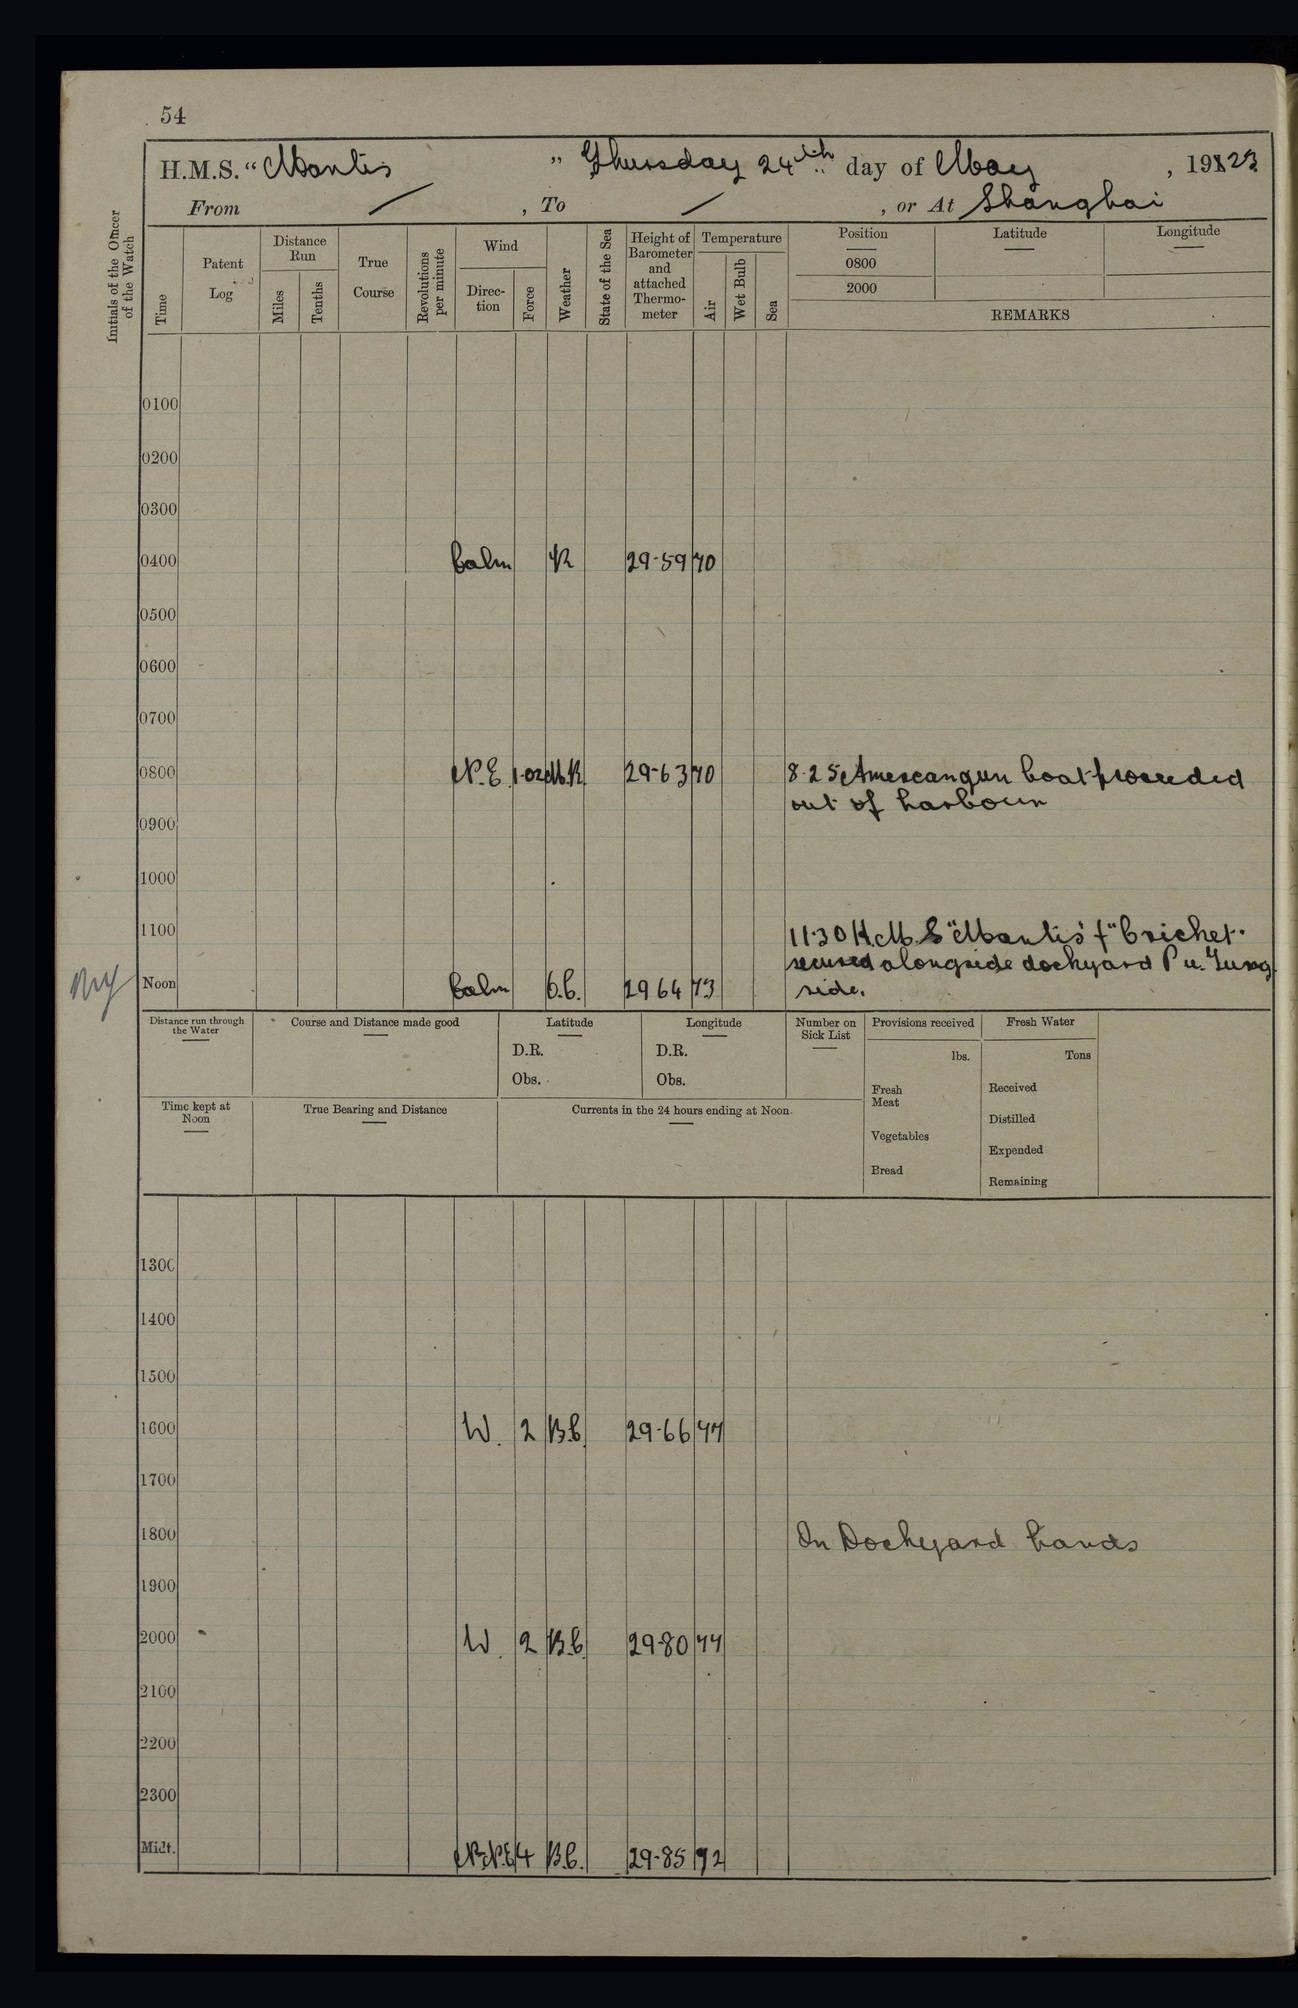 54
H.M.S. "Mantis" Thursday 24th day of May, 1923
From / , To / , or At Shanghai
Initials of the Officer of the Watch
Time
Patent Log
Distance Run
Miles
Tenths
True Course
Revolutions per minute
Wind
Direction
Force
Weather
State of the Sea
Height of Barometer and attached Thermometer
Temperature
Air
Wet Bulb
Sea
Position
0800
2000
Latitude
Longitude
REMARKS
0100
0200
0300
0400 Calm R 29-59 70
0500
0600
0700
0800 N.E. 1-02 M.R. 29-63 70 8.25 American gun boat proceeded
out of harbour
0900
1000
1100 11.30 H.M.S "Mantis" & "Cricket"
secured alongside dockyard Pu. Tung
Noon Calm O.C. 29 64 73 side.
Distance run through the Water
Course and Distance made good
Latitude
D.R.
Obs.
Longitude
D.R.
Obs.
Number on Sick List
Provisions received
lbs.
Fresh Meat
Vegetables
Bread
Fresh Water
Tons
Received
Distilled
Expended
Remaining
Time kept at Noon
True Bearing and Distance
Currents in the 24 hours ending at Noon.
1300
1400
1500
1600 W. 2 B.C. 29-66 77
1700
1800 In Dockyard hands
1900
2000 W. 2 B.C. 29-80 77
2100
2200
2300
Midt. N.N.E 4 B.C. 29-85 72